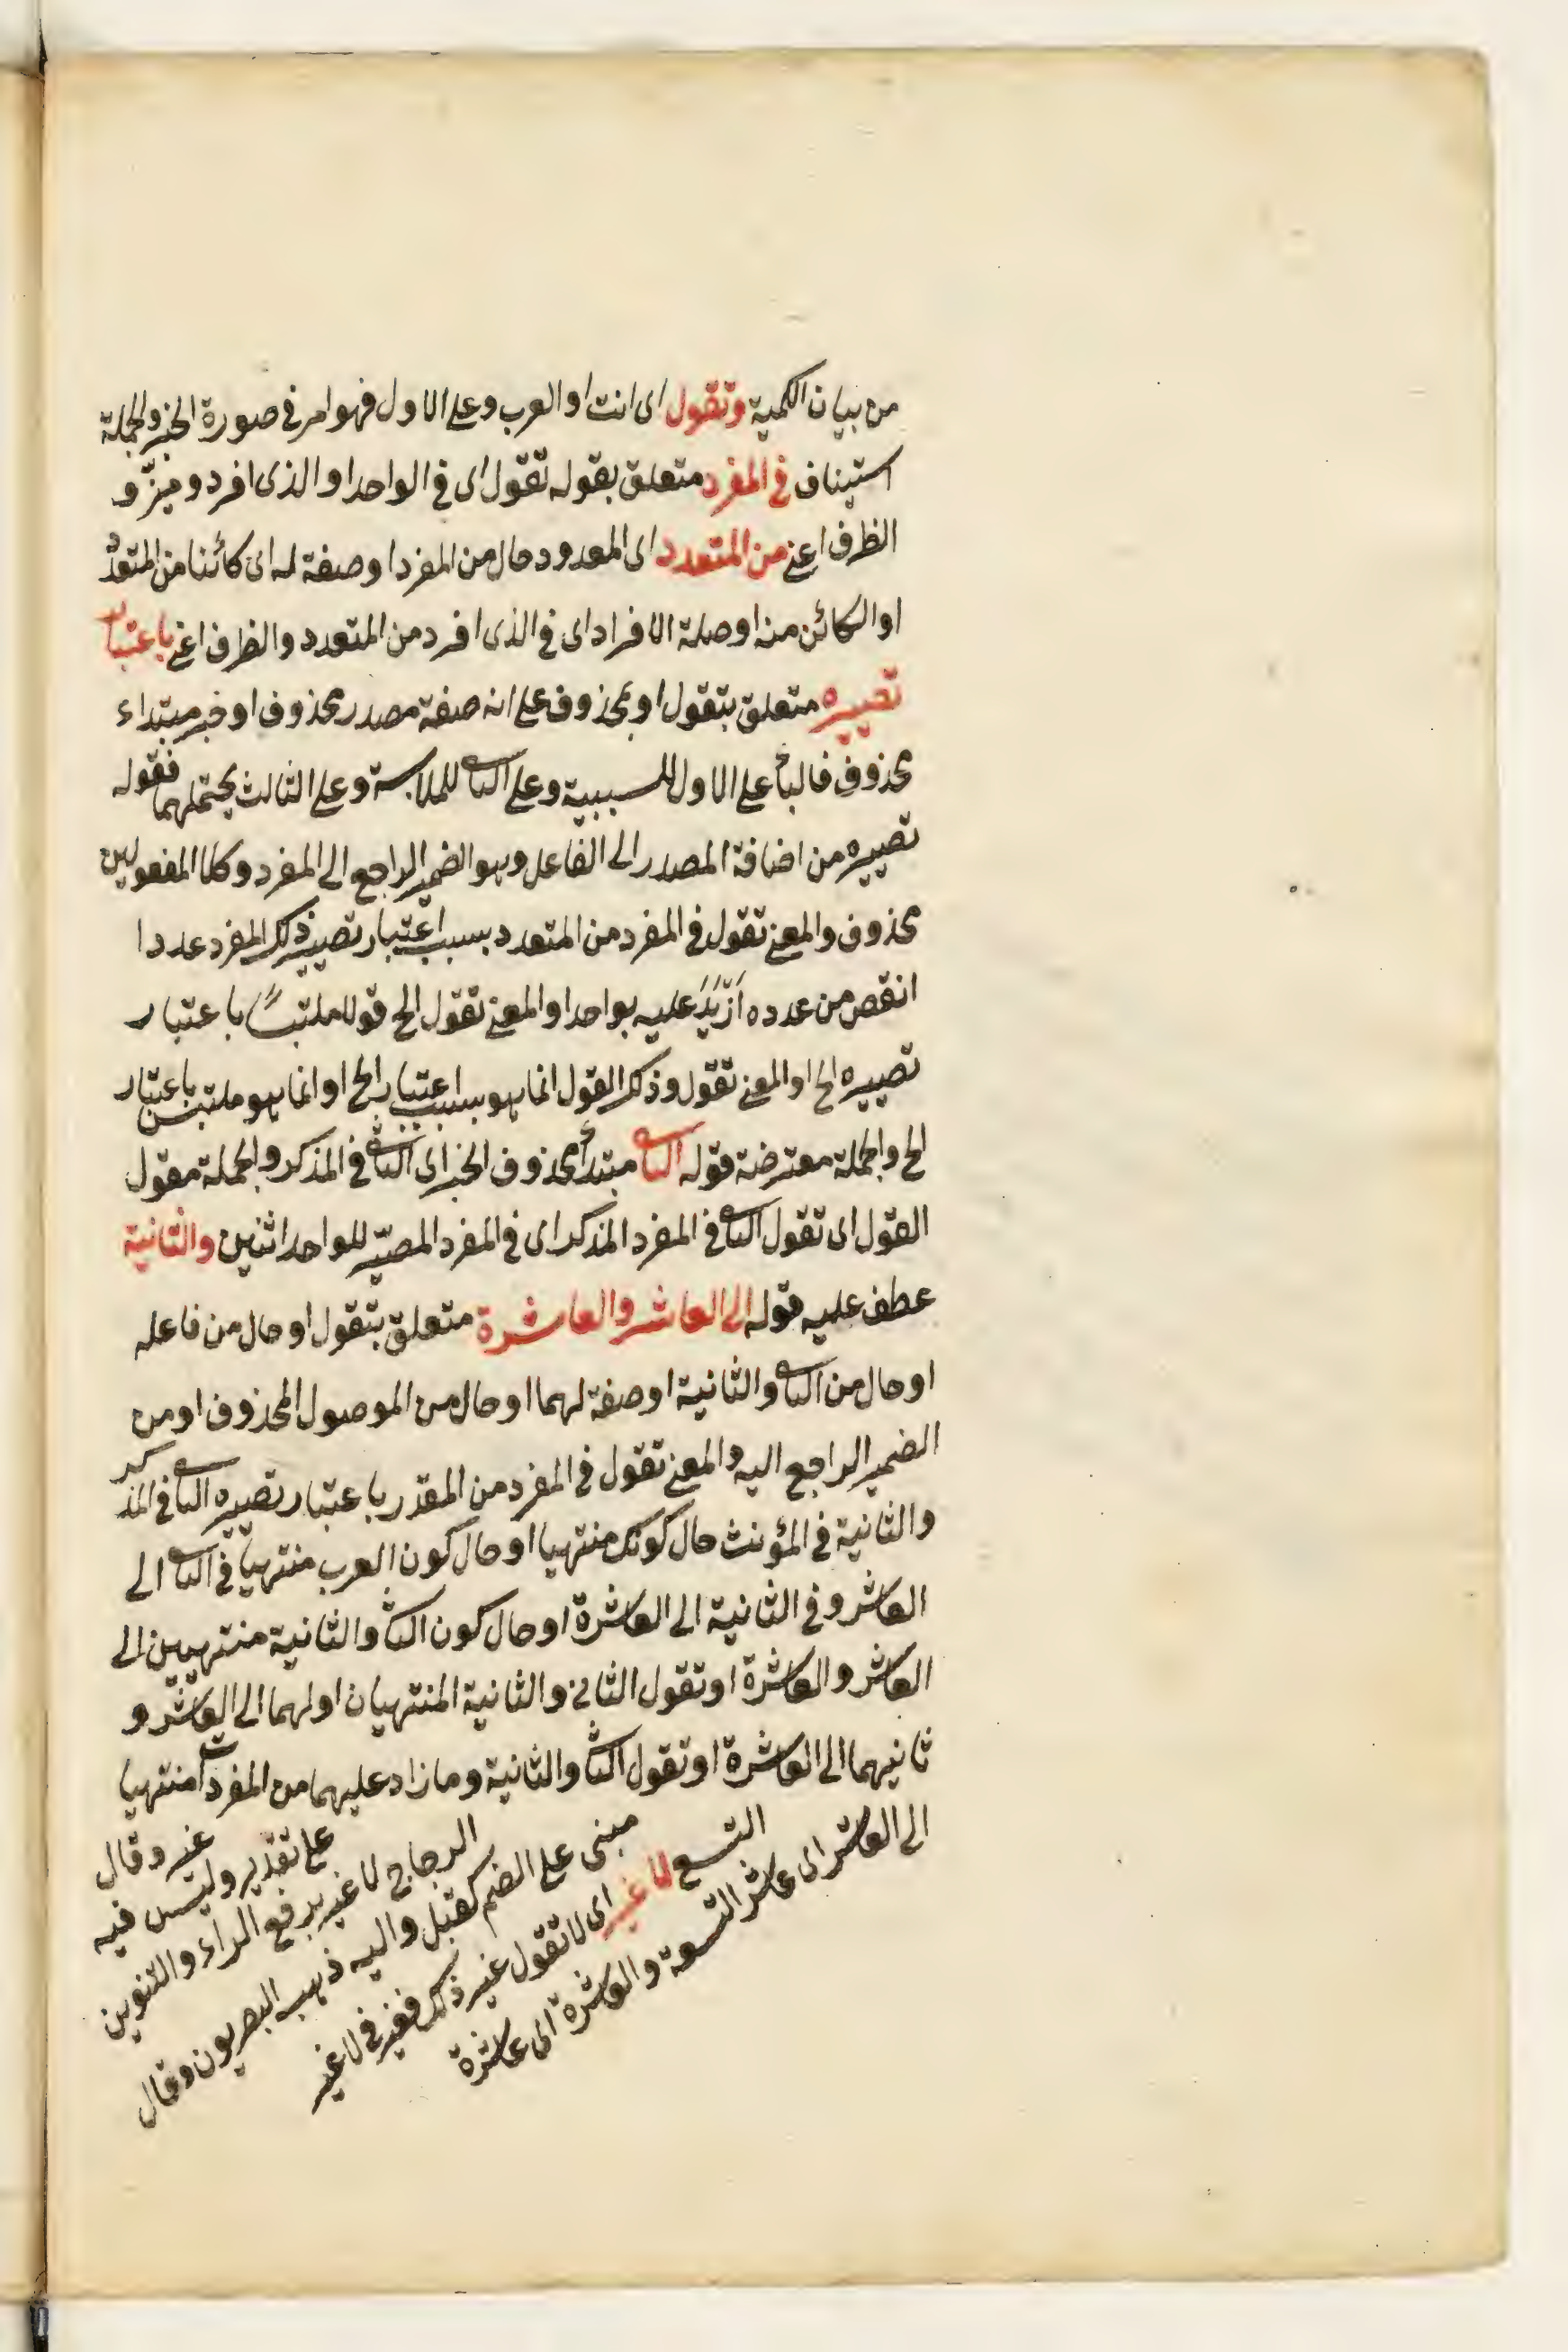 من بيان الكمية وتقول اى انت او العرب وعلى الاول فهو امر فى صورة الخبر والجملة
استيناف فى المفرد متعلق بقوله تقول اى فى الواحد او الذى افرد وميّز و
الظرف اعنى من المتعدد اى المعدود حال من المفرد او صفة له اى كائنا من المتعدد
او الكائن منه او صلة الافراد اى فى الذى افرد من المتعدد والظرف اعنى باعتبار
تصييره متعلق بتقول او بمحذوف على انه صفة مصدر محذوف او خبر مبتداء
محذوف فالباء على الاول للسببية وعلى الثانى للملابسة وعلى الثالث يحتملهما فقوله
تصييره من اضافة المصدر الى الفاعل وهو الضمير الراجع الى المفرد وكلا المفعولين
محذوف والمعنى تقول فى المفرد من المتعدد بسبب اعتبار تصيير ذلك المفرد عددا
انقص من عدده ازيد عليه بواحد او المعنى تقول الخ قولا ملتبسا باعتبار
تصييره الخ او المعنى تقول وذلك القول انما هو بسبب اعتبار الخ او انما هو ملتبس باعتبار
الخ والجملة معترضة قوله الثانى مبتدأ محذوف الخبر اى الثانى فى المذكر والجملة مقول
القول اى تقول الثانى فى المفرد المذكر اى فى المفرد المصيّر للواحد اثنين والثانية
عطف عليه قوله الى العاشر والعاشرة متعلق بتقول او حال من فاعله
او حال من الثانى والثانية او صفة لهما او حال من الموصول المحذوف او من
الضمير الراجع اليه والمعنى تقول فى المفرد من المقدر باعتبار تصييره الثانى فى المذكر
والثانية فى المؤنث حال كونك منتهيا او حال كون العرب منتهيا فى الثانى الى
العاشر وفى الثانية الى العاشرة او حال كون الثانى والثانية منتهيين الى
العاشر والعاشرة او تقول الثانى والثانية المنتهيان اولهما الى العاشر و
ثانيهما الى العاشرة او تقول الثانى والثانية وما زاد عليهما من المفردات منتهيا
الى العاشر اى عاشر التسعة والعاشرة اى عاشرة
التسع لا غير اى لا تقول غير ذلك فغير فى لا غير
مبنى على الضم كقبل واليه ذهب البصريون وقال
الزجاج لا غير برفع الراء والتنوين
على تقدير وليس فيه
غير وقال